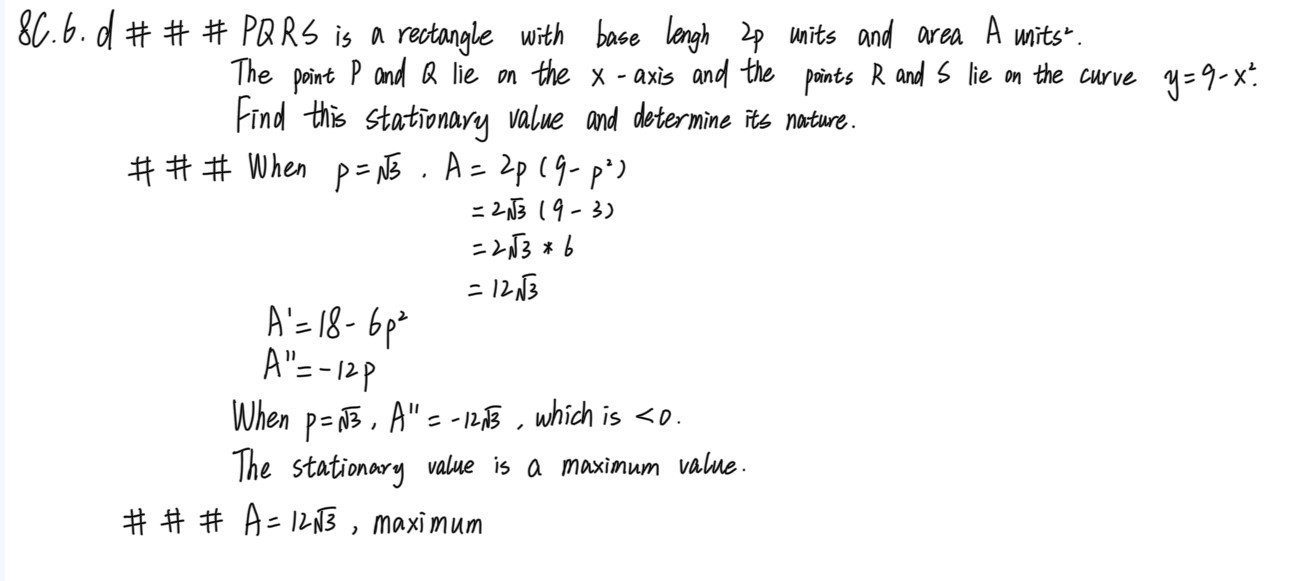 8C.6.d # # # PQRS is a rectangle with base lengh 2p units and area A units².
The point P and Q lie on the x-axis and the points R and S lie on the curve y=9-x².
Find this stationary value and determine its nature.
# # # When p=√3 . A= 2p (9-p²)
=2√3 (9-3)
=2√3 * 6
= 12√3
A'=18-6p²
A"=-12p
When p=√3, A"=-12√3, which is <0.
The stationary value is a maximum value.
# # # A=12√3, maximum